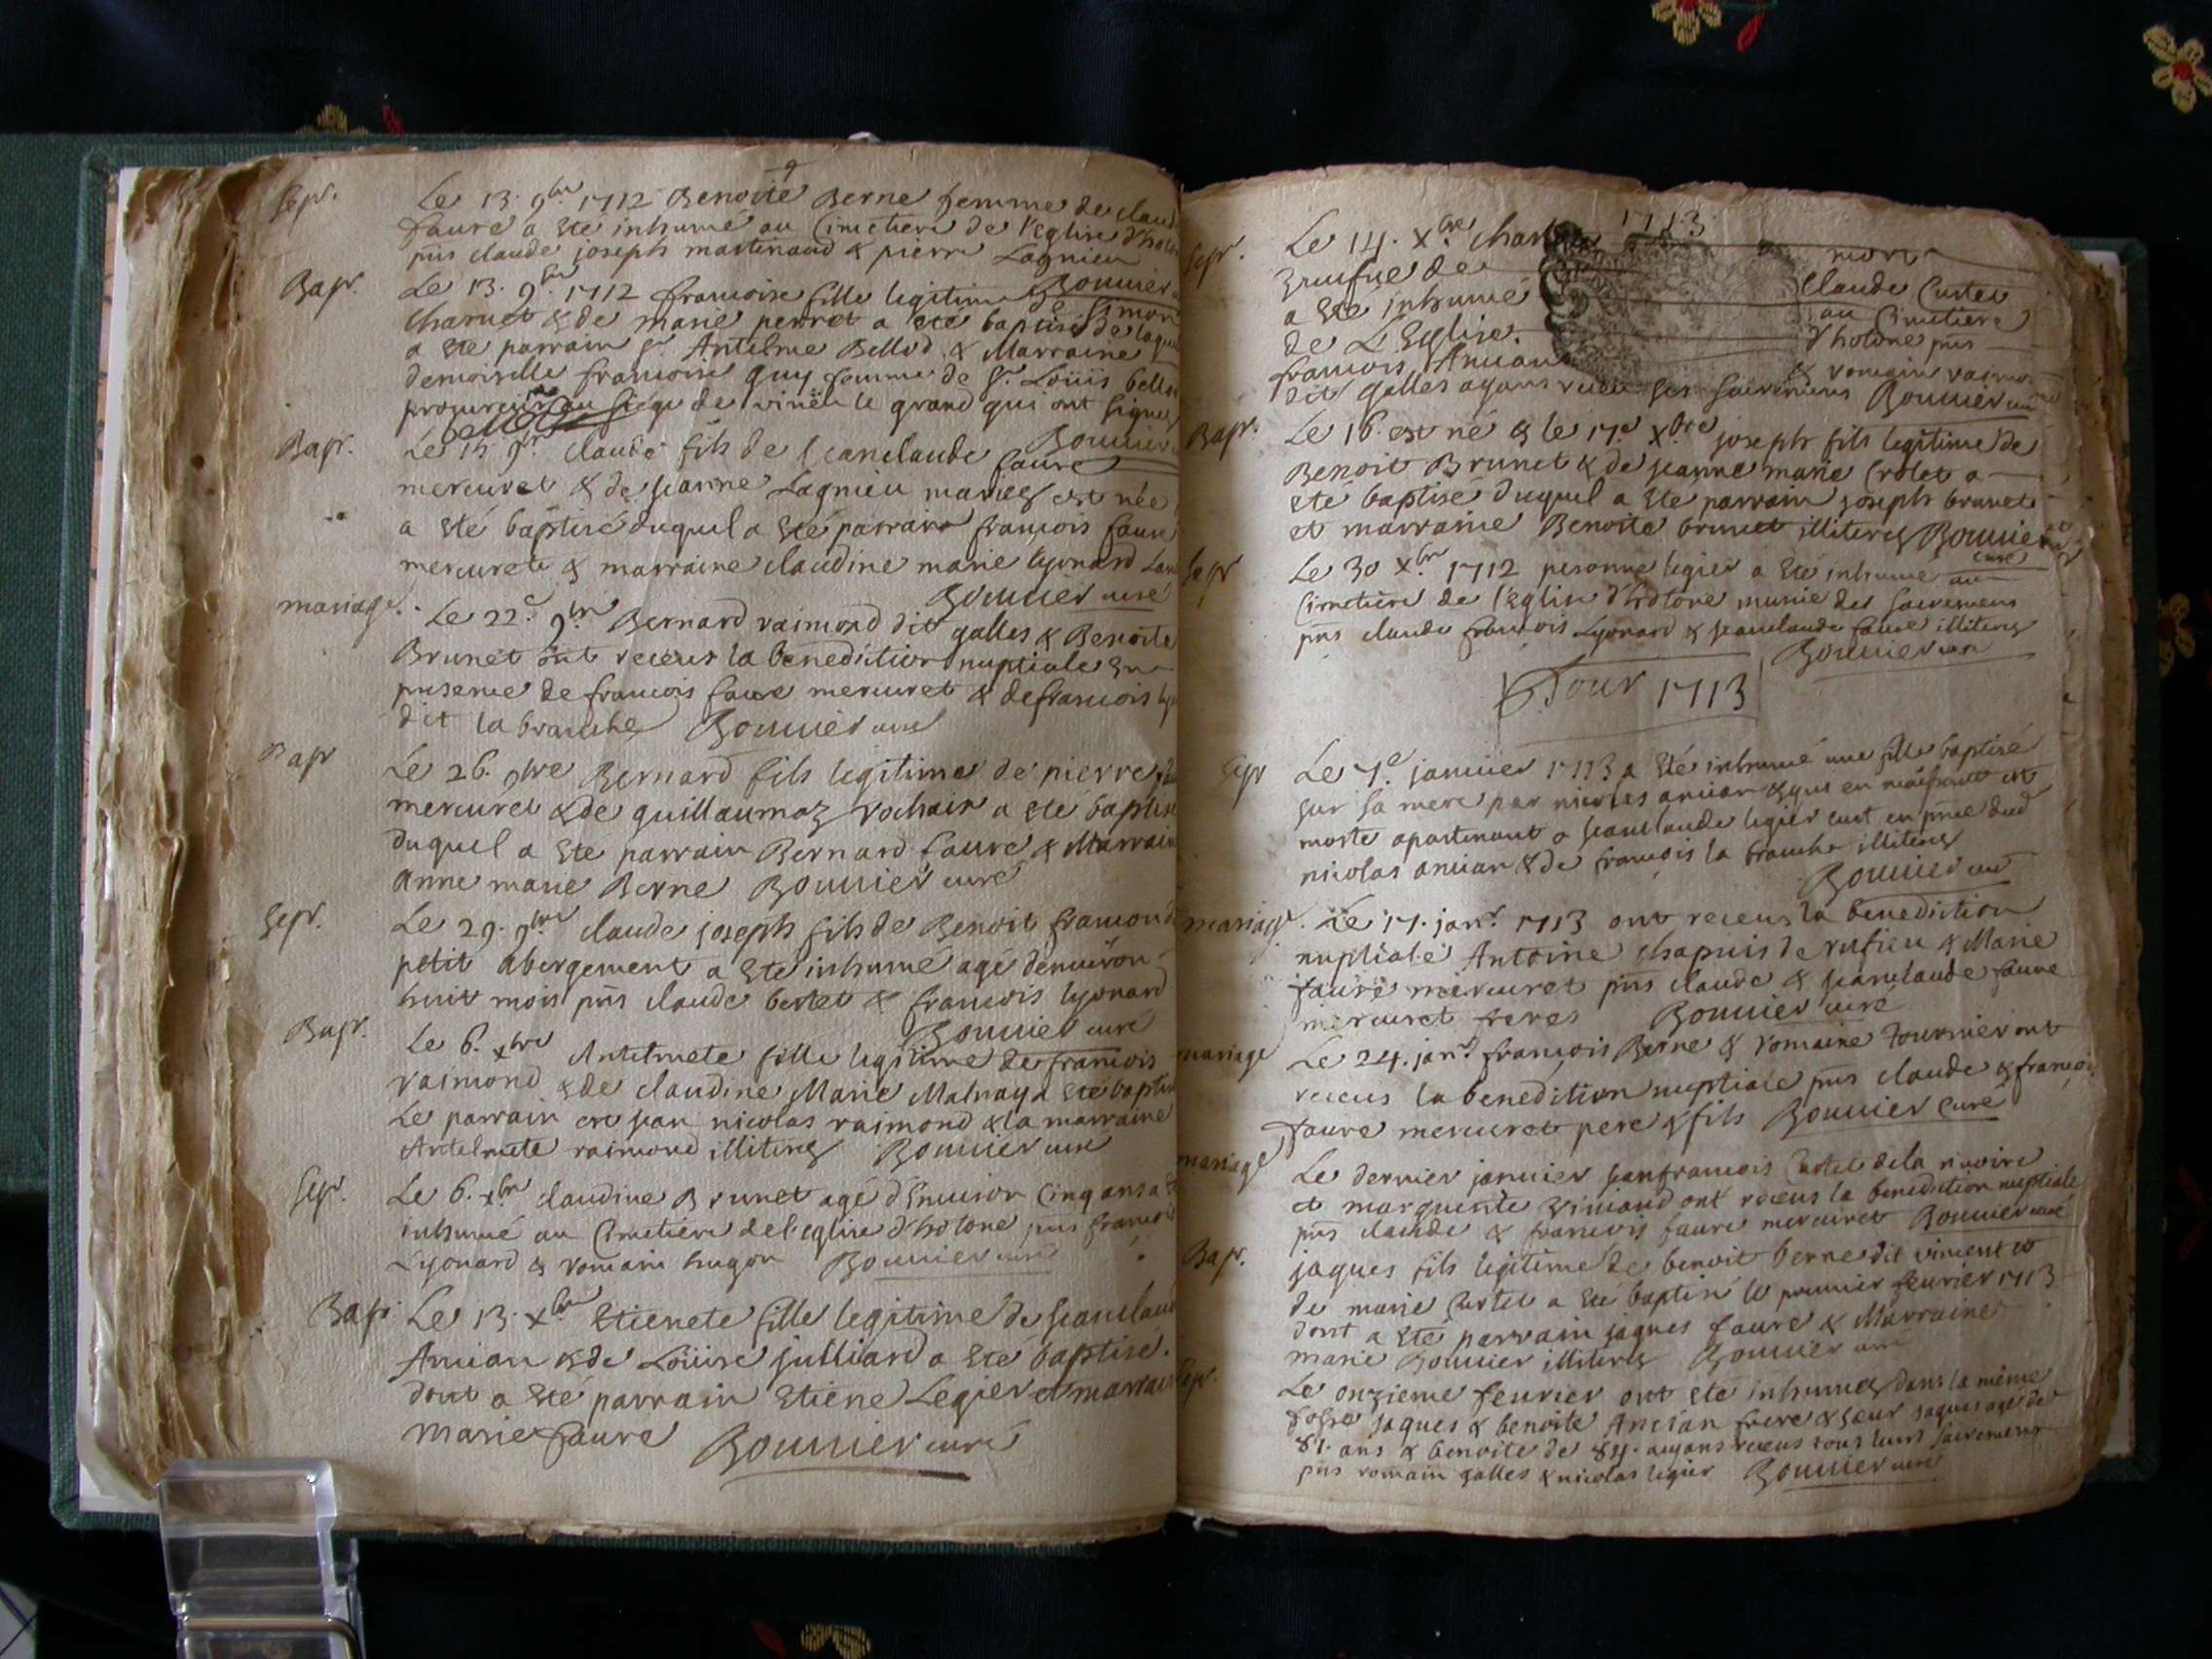 9
Sepr. Le 13. 9bre 1712 Benoite Berne femme de claud
faure a Eté inhumé au Cimetiere de l'eglise d'hoto
pns claude joseph martinand & pierre Lagnieu
Bonnier
Bapt. Le 13. 9bre 1712 francoise fille legitime de Simon
charvet & de marie perret a eté baptisé de laque
a Eté parrain Sr. Antelme Bellod & Marraine
demoiselle francoise guy femme de Sr. Loüis bello
procureur au siege de virieu le grand qui ont signe
Bonnier
Bapt. Le 15 9br. claude fils de Jeanclaude faure
mercuret & de jeanne Lagnieu mariés est née
a Eté baptisé duquel a Eté parrain francois faure
mercuret & marraine claudine marie lyonard
Bonnier curé
mariage. Le 22e 9bre Bernard raimond dit galles & Benoite
Brunet ont receus la benediction nuptiale En
presence de francois faure mercuret & de francois
dit la branche Bonnier curé
Bapt Le 26. 9bre Bernard fils legitime de pierre
mercuret & de guillaumaz rochaix a eté baptisé
duquel a Ete parrain Bernard faure & Marrain
anne marie Berne Bonnier curé
Sepr. Le 29. 9bre claude joseph fils de Benoit framond
petit abergement a Ete inhumé agé denuiron
huit mois pns claude bertet & francois lyonard
Bonnier curé
Bapt. Le 6. xbre Antelmete fille legitime de francois
raimond & de claudine Marie Malnay a Eté baptis
Le parrain est jean nicolas raimond & la marraine
Antelmete raimond illiterés Bonnier curé
Sepr. Le 6. xbre claudine Brunet agé d'Enuiron Cinq ans a
inhumé au Cimetiere de l'eglise d'hotone pns francois
Lyonard & romain hugon Bonnier curé
Bapt Le 13. xbre Etienete fille legitime de Jeanclaud
Ancian & de Loüise julliard a Eté baptisé.
dont a Eté parrain Etiene Legier et marrain
marie faure Bonnier curé
1713
Sepr. Le 14. xbre char mort
Ensuite de Claude Curtet
a Eté inhumé au Cimetiere
de L'Eglise d'hotone pns
francois Ancian & romain raimon
dit galles ayant receu ses sacremens Bonnier curé
Bapt. Le 16. est né & le 17e xbre joseph fils legitime de
Benoit Brunet & de jeanne marie Crolet a
eté baptisé duquel a Eté parrain joseph brunet
et marraine Benoite brunet illiterés Bonnier
curé
Sepr Le 30 xbre 1712 peronne legier a Eté inhumé au
Cimetiere de l'Eglise d'hotone munie des sacremens
pns claude francois Lyonard & jeanclaude faure illiterés
Bonnier curé
Pour 1713
Sepr Le 7e janvier 1713 a Eté inhumé une fille baptisé
sur sa mere par nicolas ancian & qui en naissant est
morte apartenant a jeanclaude legier cest en pnce dud
nicolas ancian & de francois la branche illiterés
Bonnier curé
mariage. Le 17. janr. 1713 ont receus la benediction
nuptiale Antoine chapuis de rufieu & Marie
faure mercuret pns claude & jeanclaude faure
mercuret freres Bonnier curé
mariage Le 24. janr. francois Berne & romaine Tournier ont
receus la benediction nuptiale pns claude & francois
faure mercuret pere & fils Bonnier Curé
mariage Le dernier janvier jeanfrancois Curtet de la riuoire
et marguerite ont receus la benediction nuptiale
pns claude & francois faure mercuret Bonnier curé
Bapt. jaques fils legitime de benoit berne dit vincent et
de marie Curtet a Eté baptisé le premier feurier 1713
dont a Eté parrain jaques faure & Marraine
marie Bonnier illiterés Bonnier curé
Sepr. Le onzieme feurier ont Eté inhumés dans la même
fosse jaques & benoite Ancian frere & sœur jaques agé de
81. ans & benoite de 84. ayans receus tous leurs sacremens
pns romain galles & nicolas legier Bonnier curé